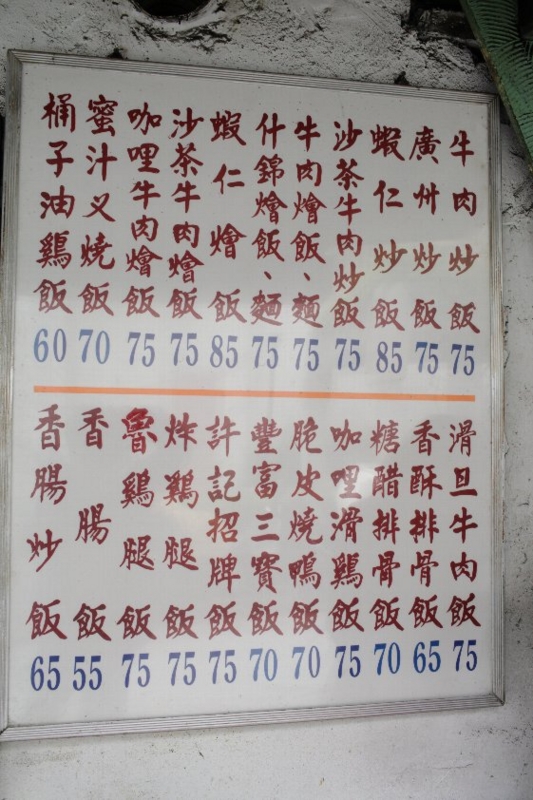 牛肉炒飯 75
廣州炒飯 75
蝦仁炒飯 85
沙茶牛肉炒飯 75
牛肉燴飯、麵 75
什錦燴飯、麵 75
蝦仁燴飯 85
沙茶牛肉燴飯 75
咖哩牛肉燴飯 75
蜜汁叉燒飯 70
桶子油鷄飯 60
滑旦牛肉飯 75
香酥排骨飯 65
糖醋排骨飯 70
咖哩滑鷄飯 75
脆皮燒鴨飯 70
豐富三寶飯 70
許記招牌飯 75
炸鷄腿飯 75
魯鷄腿飯 75
香腸飯 55
香腸炒飯 65